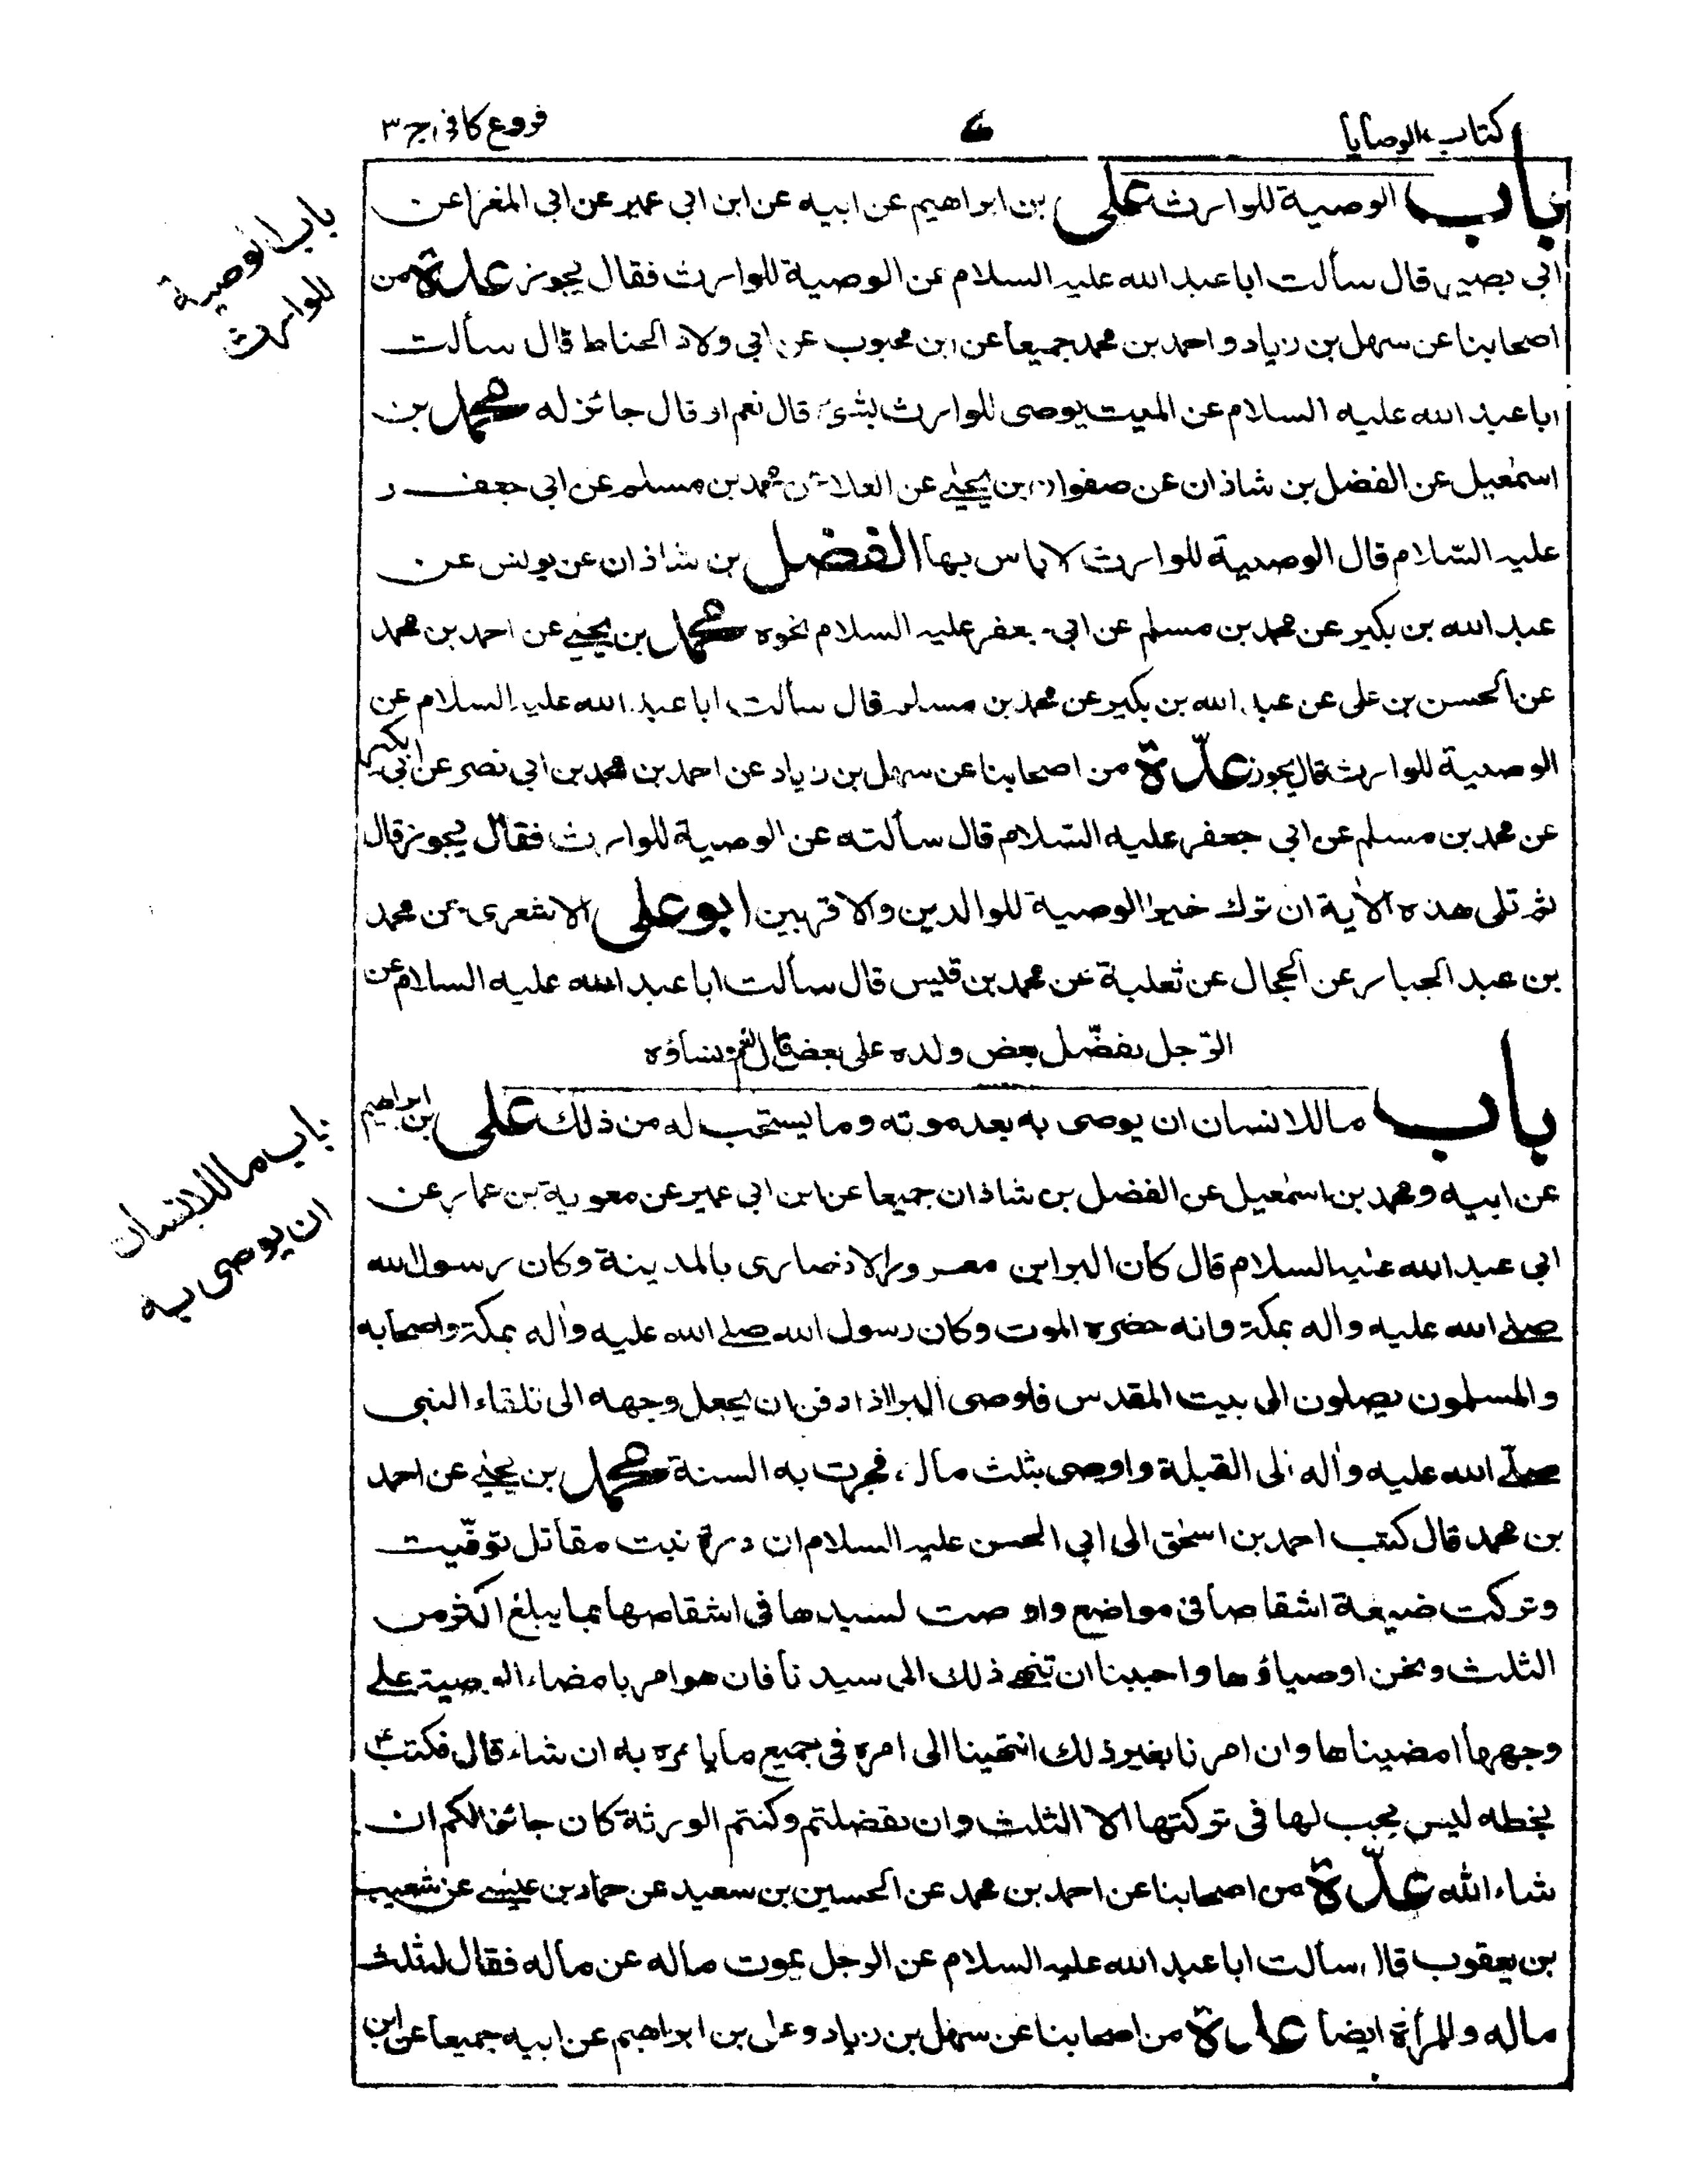 كتاب الوصايا
فروع كافى ج ٣
باب الوصية للوارث على بن ابراهيم عن ابيه عن ابن ابى عمير عن ابى المغرا عن
ابى بصير قال سألت ابا عبد الله عليه السلام عن الوصية للوارث فقال يجوز عدة من
اصحابنا عن سهل بن زياد و احمد بن محمد جميعا عن ابن محبوب عن ابى ولاد الحناط قال سألت
ابا عبد الله عليه السلام عن الميت يوصى للوارث بشئ قال نعم او قال جائز له محمد بن
اسمٰعيل عن الفضل بن شاذان عن صفوان بن يحيٰى عن العلا عن محمد بن مسلم عن ابى جعفر
عليه السّلام قال الوصية للوارث لا باس بها الفضل بن شاذان عن يونس عن
عبد الله بن بكير عن محمد بن مسلم عن ابى جعفر عليه السلام نحوه محمد بن يحيٰى عن احمد بن محمد
عن الحسن بن على عن عبد الله بن بكير عن محمد بن مسلم قال سألت ابا عبد الله عليه السلام عن
الوصية للوارث قال يجوز عدّة من اصحابنا عن سهل بن زياد عن احمد بن محمد بن ابى نصر عن ابن بكير
عن محمد بن مسلم عن ابى جعفر عليه السّلام قال سألته عن الوصية للوارث فقال يجوز قال
ثم تلى هذه الاٰية ان ترك خيرا الوصية للوالدين والاقربين ابو على الاشعرى عن محمد
بن عبد الجبار عن الحجال عن ثعلبة عن محمد بن قيس قال سألت ابا عبد الله عليه السلام عن
الرّجل يفضّل بعض ولده على بعض قال نعم ونساؤه
باب ما للانسان ان يوصى به بعد موته وما يستحب له من ذلك على بن ابراهيم
عن ابيه ومحمد بن اسمٰعيل عن الفضل بن شاذان جميعا عن ابن ابى عمير عن معوية بن عمار عن
ابى عبد الله عليه السلام قال كان البرا بن معرور الانصارى بالمدينة وكان رسول الله
صلى الله عليه واٰله بمكة وانه حضره الموت وكان رسول الله صلى الله عليه واٰله بمكة واصحابه
والمسلمون يصلون الى بيت المقدس فاوصى البرا اذا دفن ان يجعل وجهه الى تلقاء النبى
صلّى الله عليه واٰله الى القبلة واوصى بثلث ماله فجرت به السنة محمد بن يحيٰى عن احمد
بن محمد قال كتب احمد بن اسحٰق الى ابى الحسن عليه السلام ان درة بنت مقاتل توفّيت
وتركت ضيعة اشقاصا فى مواضع واوصت لسيدها فى اشقاصها بما يبلغ اكثر من
الثلث ونحن اوصياؤها واحببنا ان ننهى ذلك الى سيدنا فان هو امر بامضاء الوصية على
وجهها امضيناها وان امرنا بغير ذلك انتهينا الى امره فى جميع ما يامره به ان شاء قال فكتب ع
بخطه ليس يجب لها فى تركتها الا الثلث وان تفضلتم وكنتم الورثة كان جائزا لكم ان
شاء الله عدّة من اصحابنا عن احمد بن محمد عن الحسين بن سعيد عن حماد بن عيسٰى عن شعيب
بن يعقوب قال سألت ابا عبد الله عليه السلام عن الرجل يموت ماله عن ماله فقال له ثلث
ماله وللمرأة ايضا عدة من اصحابنا عن سهل بن زياد وعلى بن ابراهيم عن ابيه جميعا عن ابن
باب الوصية
للوارث
باب ما للانسان
ان يوصى به